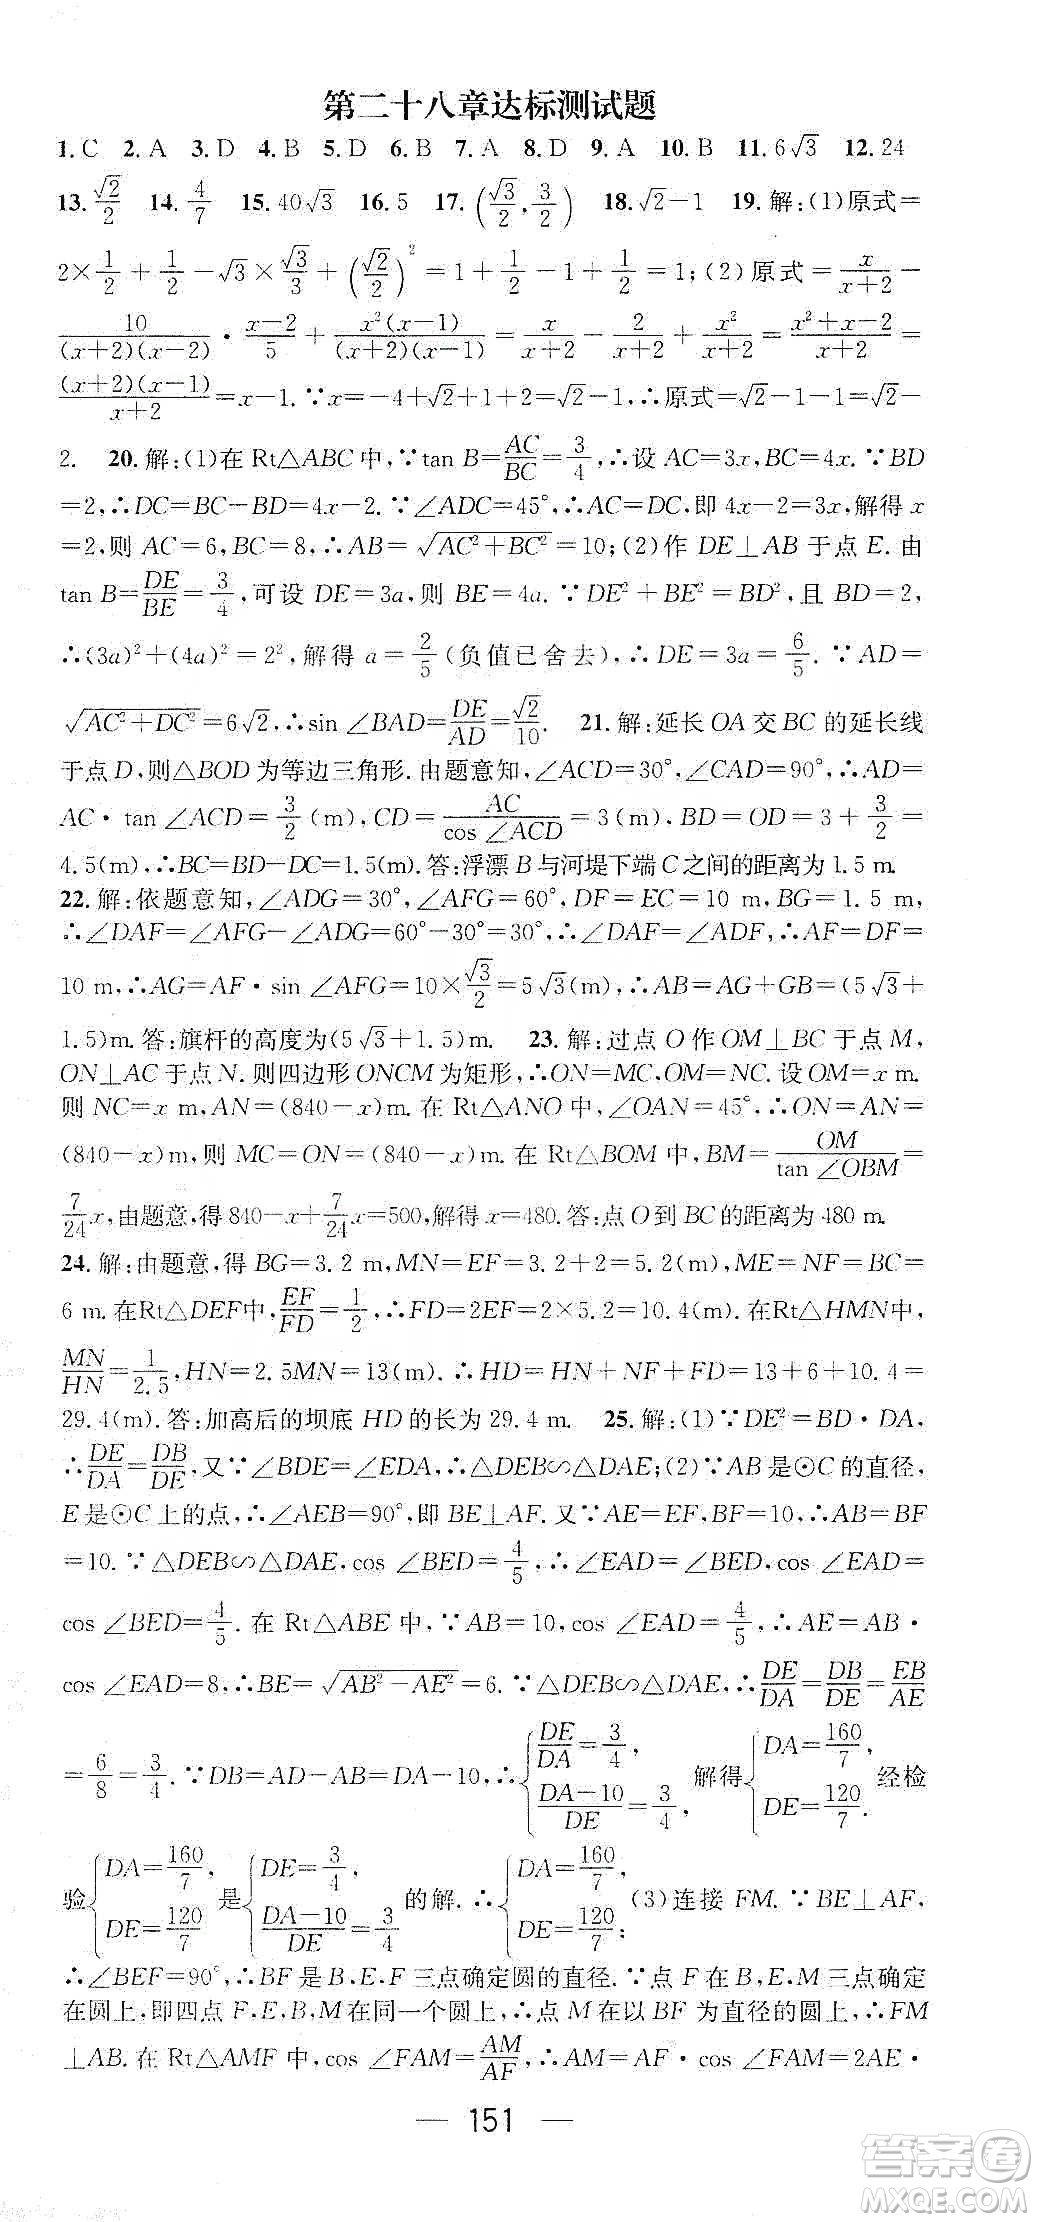 第二十八章达标测试题
1. C 2. A 3. D 4. B 5. D 6. B 7. A 8. D 9. A 10. B 11. 6√3 12. 24
13. √2/2 14. 4/7 15. 40√3 16. 5 17. (√3/2, 3/2) 18. √2－1 19. 解:(1)原式＝
2×1/2＋1/2－√3×√3/3＋(√2/2)²＝1＋1/2－1＋1/2＝1;(2)原式＝x/(x＋2)－
10/((x＋2)(x－2))·(x－2)/5＋x²(x－1)/((x＋2)(x－1))＝x/(x＋2)－2/(x＋2)＋x²/(x＋2)＝(x²＋x－2)/(x＋2)＝
(x＋2)(x－1)/(x＋2)＝x－1.∵x＝－4＋√2＋1＋2＝√2－1,∴原式＝√2－1－1＝√2－
2. 20. 解:(1)在Rt△ABC中,∵tan B＝AC/BC＝3/4,∴设AC＝3x,BC＝4x.∵BD
＝2,∴DC＝BC－BD＝4x－2.∵∠ADC＝45°,∴AC＝DC,即4x－2＝3x,解得x
＝2,则AC＝6,BC＝8,∴AB＝√(AC²＋BC²)＝10;(2)作DE⊥AB于点E.由
tan B＝DE/BE＝3/4,可设DE＝3a,则BE＝4a.∵DE²＋BE²＝BD²,且BD＝2,
∴(3a)²＋(4a)²＝2²,解得a＝2/5(负值已舍去),∴DE＝3a＝6/5.∵AD＝
√(AC²＋DC²)＝6√2,∴sin∠BAD＝DE/AD＝√2/10. 21. 解:延长OA交BC的延长线
于点D,则△BOD为等边三角形.由题意知,∠ACD＝30°,∠CAD＝90°,∴AD＝
AC·tan∠ACD＝3/2(m),CD＝AC/cos∠ACD＝3(m),∴BD＝OD＝3＋3/2＝
4.5(m),∴BC＝BD－DC＝1.5(m).答:浮漂B与河堤下端C之间的距离为1.5 m.
22. 解:依题意知,∠ADG＝30°,∠AFG＝60°,DF＝EC＝10 m,BG＝1.5 m,
∴∠DAF＝∠AFG－∠ADG＝60°－30°＝30°,∴∠DAF＝∠ADF,∴AF＝DF＝
10 m,∴AG＝AF·sin∠AFG＝10×√3/2＝5√3(m),∴AB＝AG＋GB＝(5√3＋
1.5)m.答:旗杆的高度为(5√3＋1.5)m. 23. 解:过点O作OM⊥BC于点M,
ON⊥AC于点N.则四边形ONCM为矩形,∴ON＝MC,OM＝NC.设OM＝x m.
则NC＝x m,AN＝(840－x)m.在Rt△ANO中,∠OAN＝45°,∴ON＝AN＝
(840－x)m,则MC＝ON＝(840－x)m.在Rt△BOM中,BM＝OM/tan∠OBM＝
7/24x,由题意,得840－x＋7/24x＝500,解得x＝480.答:点O到BC的距离为480 m.
24. 解:由题意,得BG＝3.2 m,MN＝EF＝3.2＋2＝5.2(m),ME＝NF＝BC＝
6 m.在Rt△DEF中,EF/FD＝1/2,∴FD＝2EF＝2×5.2＝10.4(m).在Rt△HMN中,
MN/HN＝1/2.5,HN＝2.5MN＝13(m).∴HD＝HN＋NF＋FD＝13＋6＋10.4＝
29.4(m).答:加高后的坝底HD的长为29.4 m. 25. 解:(1)∵DE²＝BD·DA,
∴DE/DA＝DB/DE,又∵∠BDE＝∠EDA,∴△DEB∽△DAE;(2)∵AB是⊙C的直径,
E是⊙C上的点,∴∠AEB＝90°,即BE⊥AF.又∵AE＝EF,BF＝10,∴AB＝BF
＝10.∵△DEB∽△DAE,cos∠BED＝4/5,∴∠EAD＝∠BED,cos∠EAD＝
cos∠BED＝4/5.在Rt△ABE中,∵AB＝10,cos∠EAD＝4/5,∴AE＝AB·
cos∠EAD＝8,∴BE＝√(AB²－AE²)＝6.∵△DEB∽△DAE,∴DE/DA＝DB/DE＝EB/AE
＝6/8＝3/4.∵DB＝AD－AB＝DA－10,∴{DE/DA＝3/4, (DA－10)/DE＝3/4, 解得{DA＝160/7, DE＝120/7. 经检
验{DA＝160/7, DE＝120/7 是{DE＝3/4, (DA－10)/DE＝3/4 的解.∴{DA＝160/7, DE＝120/7; (3)连接FM.∵BE⊥AF,
∴∠BEF＝90°,∴BF是B、E、F三点确定圆的直径.∵点F在B,E,M三点确定
在圆上,即四点F、E、B、M在同一个圆上,∴点M在以BF为直径的圆上,∴FM
⊥AB.在Rt△AMF中,cos∠FAM＝AM/AF,∴AM＝AF·cos∠FAM＝2AE·
— 151 —
答案圈
MXQE.COM